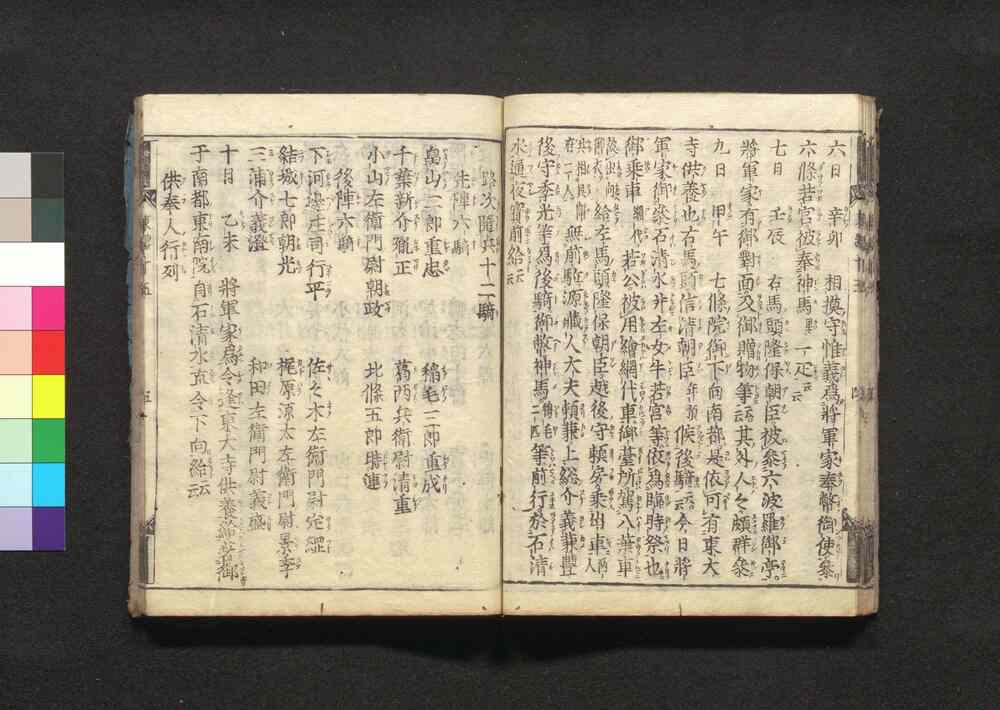 六日　辛卯　相摸守惟義為將軍家奉幣御使參
六條若宮被奉神馬 一疋云云
七日　壬辰　右馬頭隆保朝臣被參六波羅御亭
將軍家有御對面及御贈物等云云其外人々頗群參
九日　甲午　七條院御下向南都是依可有東大
寺供養也右馬頭信清朝臣 候後騎云云今日將
軍家御參石清水并左女牛若宮等依為臨時祭也
御乘車 若公被用繪網代車御臺所駕八葉車
給左馬頭隆保朝臣越後守頼房乘出車
在一人 無前駈源藏人大夫頼兼上総介義兼豐
後守季光等為後騎御幣神馬 等前行於石清
水通夜寳前給云云
路次隨兵十二騎
先陣六騎
畠山二郎重忠　稲毛三郎重成
千葉新介胤正　葛西兵衛尉清重
小山左衛門尉朝政　北條五郎時連
後陣六騎
下河邊庄司行平　佐々木左衛門尉定綱
結城七郎朝光　梶原源太左衛門尉景季
三浦介義澄　和田左衛門尉義盛
十日　乙未　將軍家為令逢東大寺供養給著御
于南都東南院自石清水直令下向給云云
供奉人行列